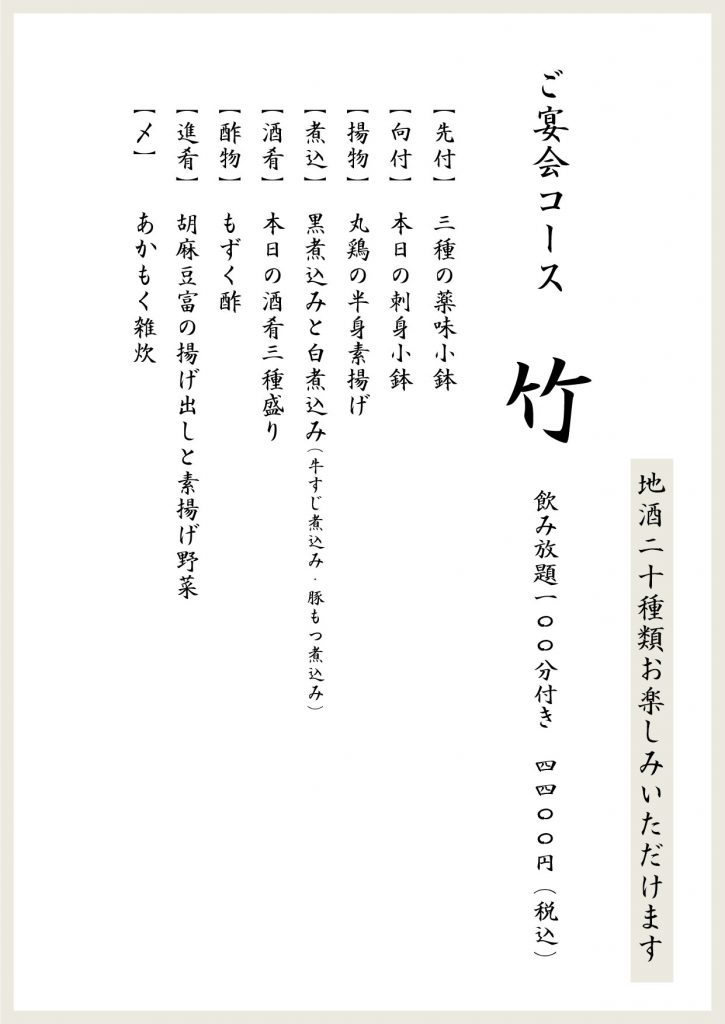 地酒二十種類お楽しみいただけます
ご宴会コース 竹 飲み放題一〇〇分付き 四四〇〇円（税込）
【先付】 三種の薬味小鉢
【向付】 本日の刺身小鉢
【揚物】 丸鶏の半身素揚げ
【煮込】 黒煮込みと白煮込み（牛すじ煮込み・豚もつ煮込み）
【酒肴】 本日の酒肴三種盛り
【酢物】 もずく酢
【進肴】 胡麻豆富の揚げ出しと素揚げ野菜
【〆】 あかもく雑炊